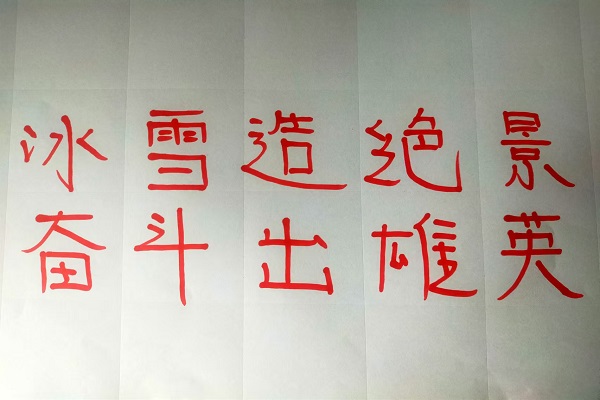 冰雪造绝景
奋斗出雄英